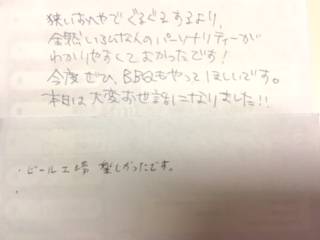 狭いおへやでぐるぐるするより、
全然いろいろな人のパーソナリティーが
わかりやすくてよかったです!
今度ぜひ、BBQもやってほしいです。
本日は大変お世話になりました!!
・ビール工場 楽しかったです。
・